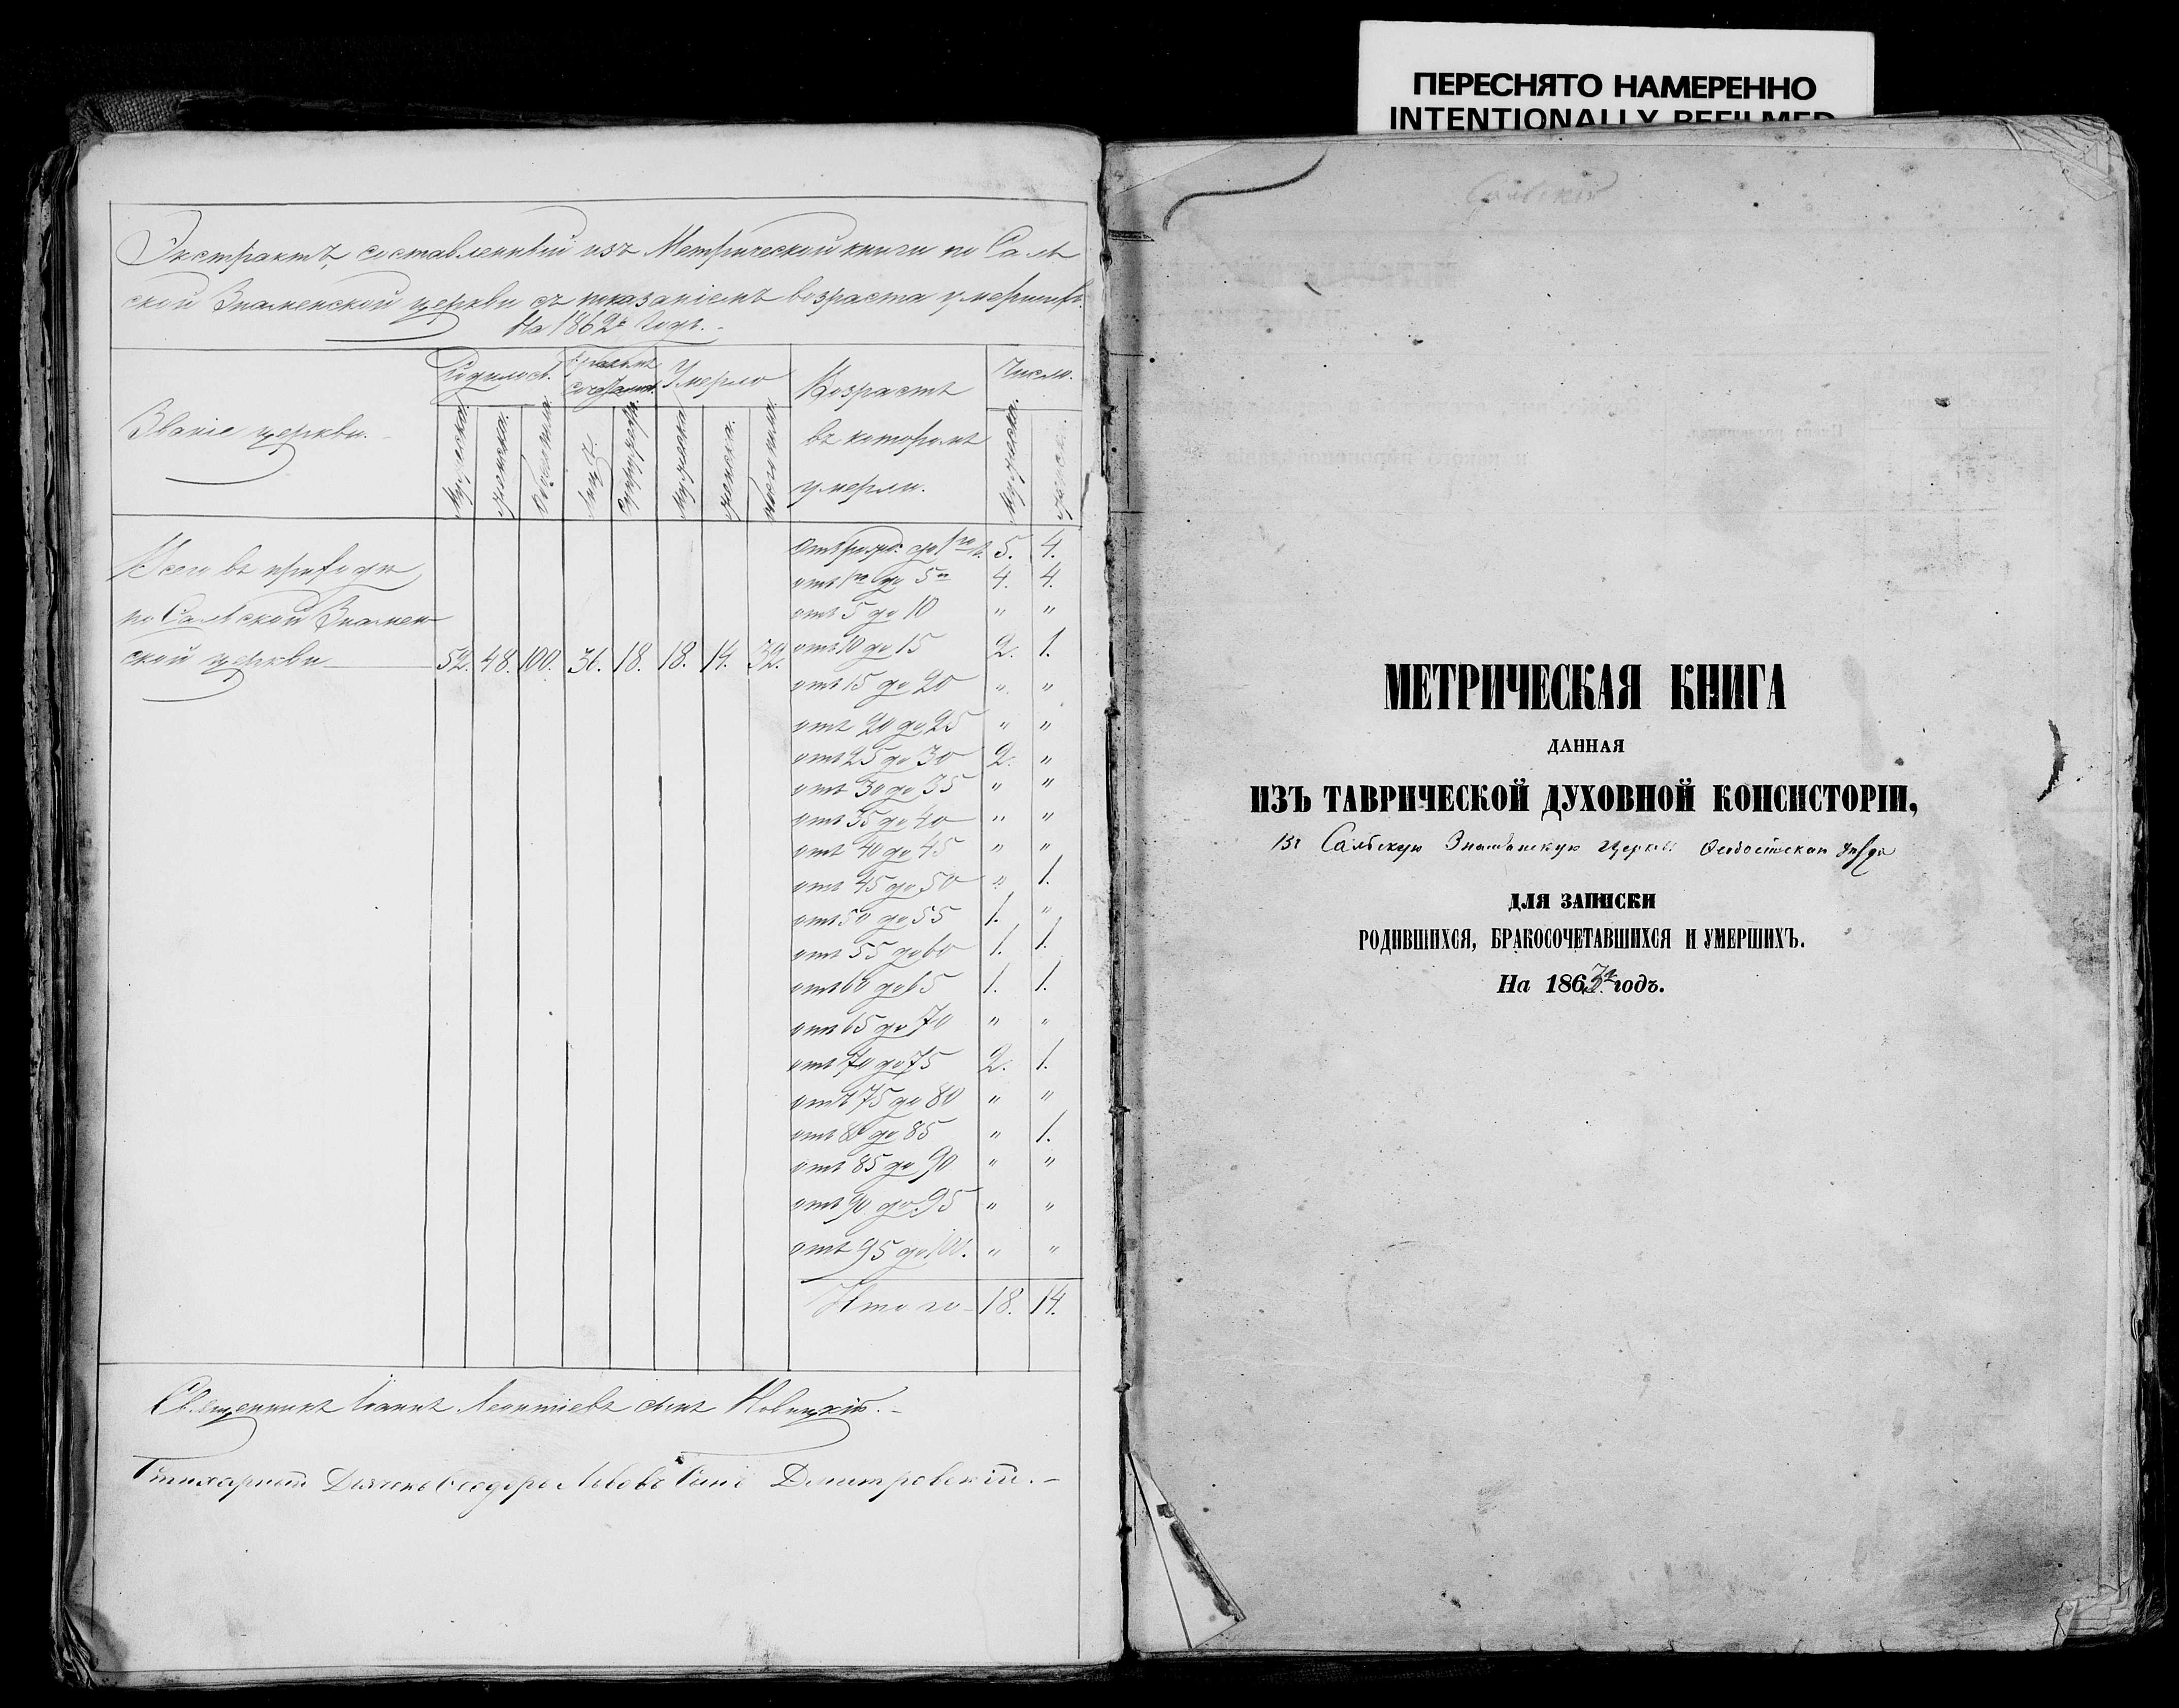 ПЕРЕСНЯТО НАМЕРЕННО
INTENTIONALLY REFILMED
Экстрактъ, составленный изъ Метрической книги по Саль
ской Знаменской церкви съ показаніемъ возраста умершихъ.
На 1862й Годъ.
Званіе церкви.
Родилось.
Бракомъ сочетано.
Умерло
Возрастъ въ которомъ умерли.
Число.
Мужеска. женска. Обоего пола Лицъ Супружест. Мужеска женска. обоего пола. Мужеска. женска.
Всего въ приходѣ
по Сальской Знамен
ской церкви 52. 48. 100. 36. 18. 18. 14. 32.
отъ рожд. до 1го г. 5. 4.
отъ 1го до 5ти 4. 4.
отъ 5 до 10 " "
отъ 10 до 15 2. 1.
отъ 15 до 20 " "
отъ 20 до 25 " "
отъ 25 до 30 2. "
отъ 30 до 35 " "
отъ 35 до 40 " "
отъ 40 до 45 " "
отъ 45 до 50 " 1.
отъ 50 до 55 1. "
отъ 55 до 60 1. 1.
отъ 60 до 65 1. 1.
отъ 65 до 70 " "
отъ 70 до 75 2. 1.
отъ 75 до 80 " "
отъ 80 до 85 " 1.
отъ 85 до 90 " "
отъ 90 до 95 " "
отъ 95 до 100. " "
Итого 18. 14.
Священникъ Іоаннъ Леонтіевъ сынъ Новицкій.
Стихарный Дьячекъ Ѳеодоръ Львовъ Сынъ Дмитровскій.
Сальской
МЕТРИЧЕСКАЯ КНИГА
ДАННАЯ
ИЗЪ ТАВРИЧЕСКОЙ ДУХОВНОЙ КОНСИСТОРІИ,
Въ Сальскую Знаменскую Церковь Ѳеодосійскаго уѣзда
ДЛЯ ЗАПИСКИ
РОДИВШИХСЯ, БРАКОСОЧЕТАВШИХСЯ И УМЕРШИХЪ.
На 1863й годъ.